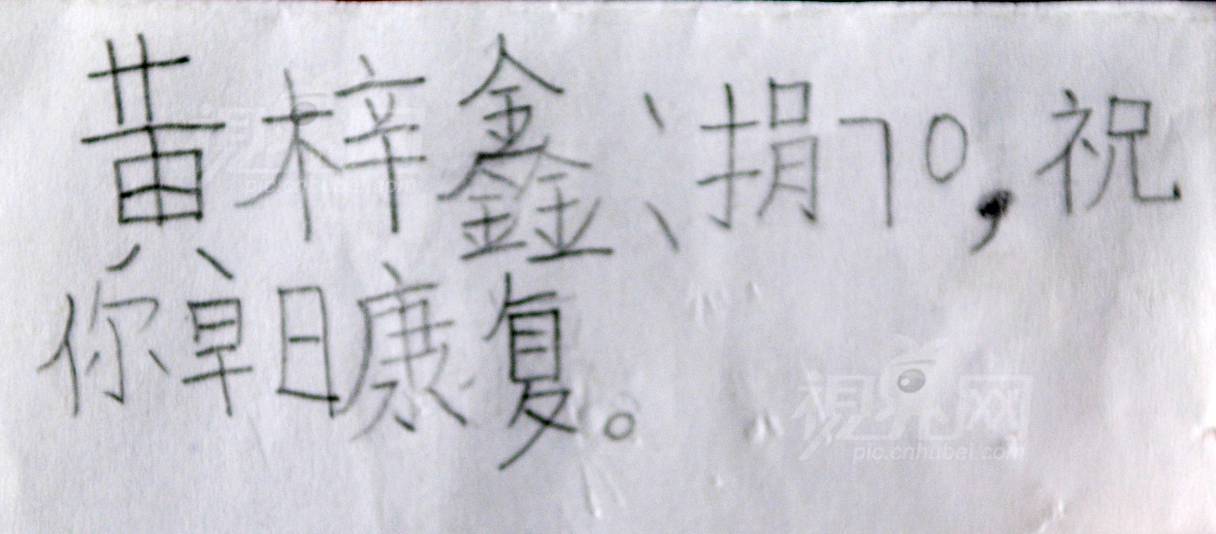 黄梓鑫：捐70，祝
你早日康复。
視界网
pic.cnhubei.com